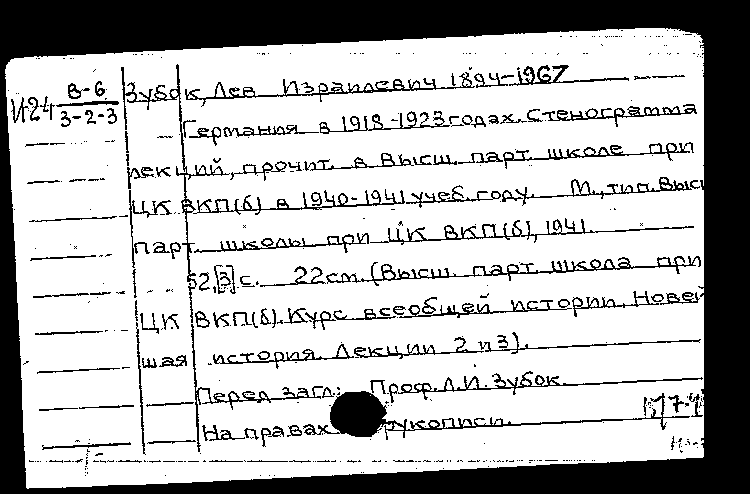 И24 В-6
3-2-3
Зубок, Лев Израилевич 1894-1967
Германия в 1918-1923 годах. Стенограмма
лекций, прочит. в Высш. парт. школе при
ЦК ВКП(б) в 1940-1941 учеб. году. М., тип. Высш
парт. школы при ЦК ВКП(б), 1941.
52,[3] с. 22см. (Высш. парт. школа при
ЦК ВКП(б). Курс всеобщей истории. Новей
шая история. Лекции 2 и 3).
Перед загл.: Проф. Л.И. Зубок.
На правах рукописи.